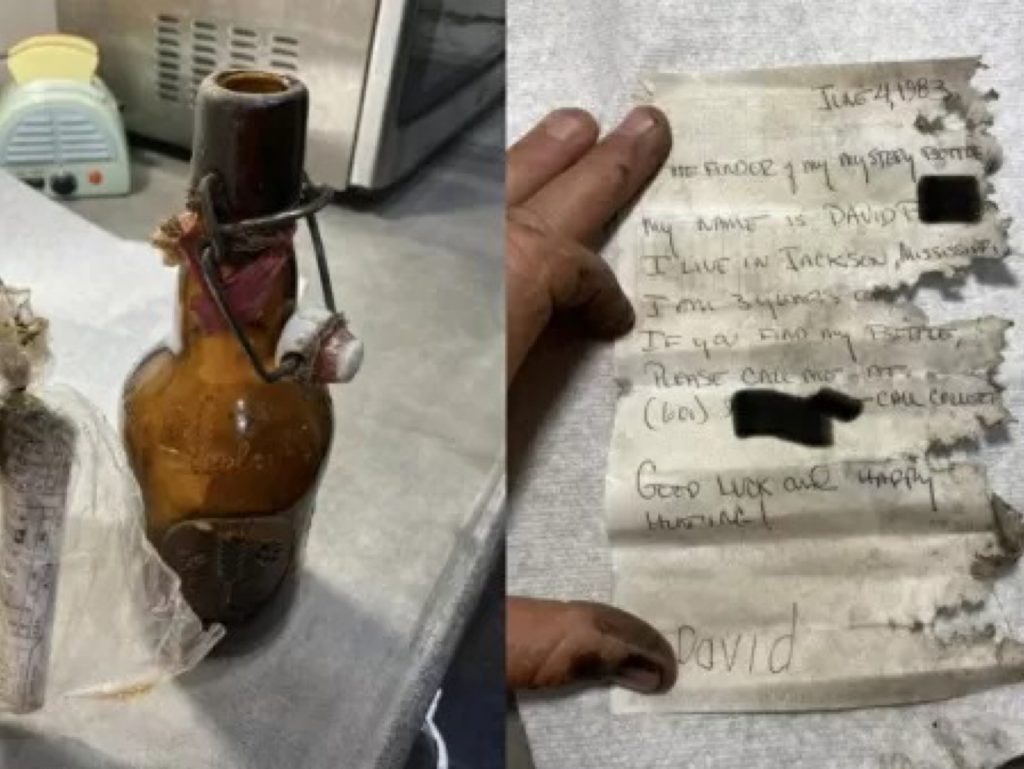 JUNE 4, 1983
THE FINDER of my MYSTERY BOTTLE
MY NAME IS DAVID
I LIVE IN JACKSON, MISSISSIPPI
I AM 3 years
IF YOU FIND MY BOTTLE,
PLEASE CALL ME AT
(601) - CALL COLLECT
GOOD LUCK and HAPPY
HUNTING!
David